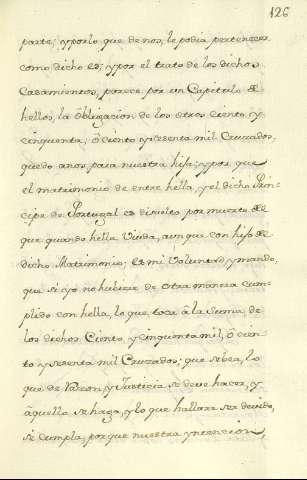 126
parte; y por lo que de nos, le podia pertenecer
como dicho es; y por el trato de los dichos
Casamientos, parece por un Capitulo de
hellos, la obligacion de los otros ciento y
cinquenta, ó ciento y sesenta mil Cruzados,
quedo anos, para nuestra hija; y por que
el matrimonio de entre hella, y el dicho Prin-
cipe de Portugal es disuelto por muerte de
que quando hella Viuda, aun que con hijo de
dicho Matrimonio; es mi Voluntad, y mando,
que si yo no hubiere de otra manera cum-
plido con hella, lo que toca â la Suma, de
los dichos Ciento, y Cinquanta mil, ô cien-
to y sesenta mil Cruzados; que se bea, lo
que de Razon, y Justicia se deue hacer, y
aquello se haga, y lo que hallare ser devido,
se cumpla, porque nuestra yntencion,